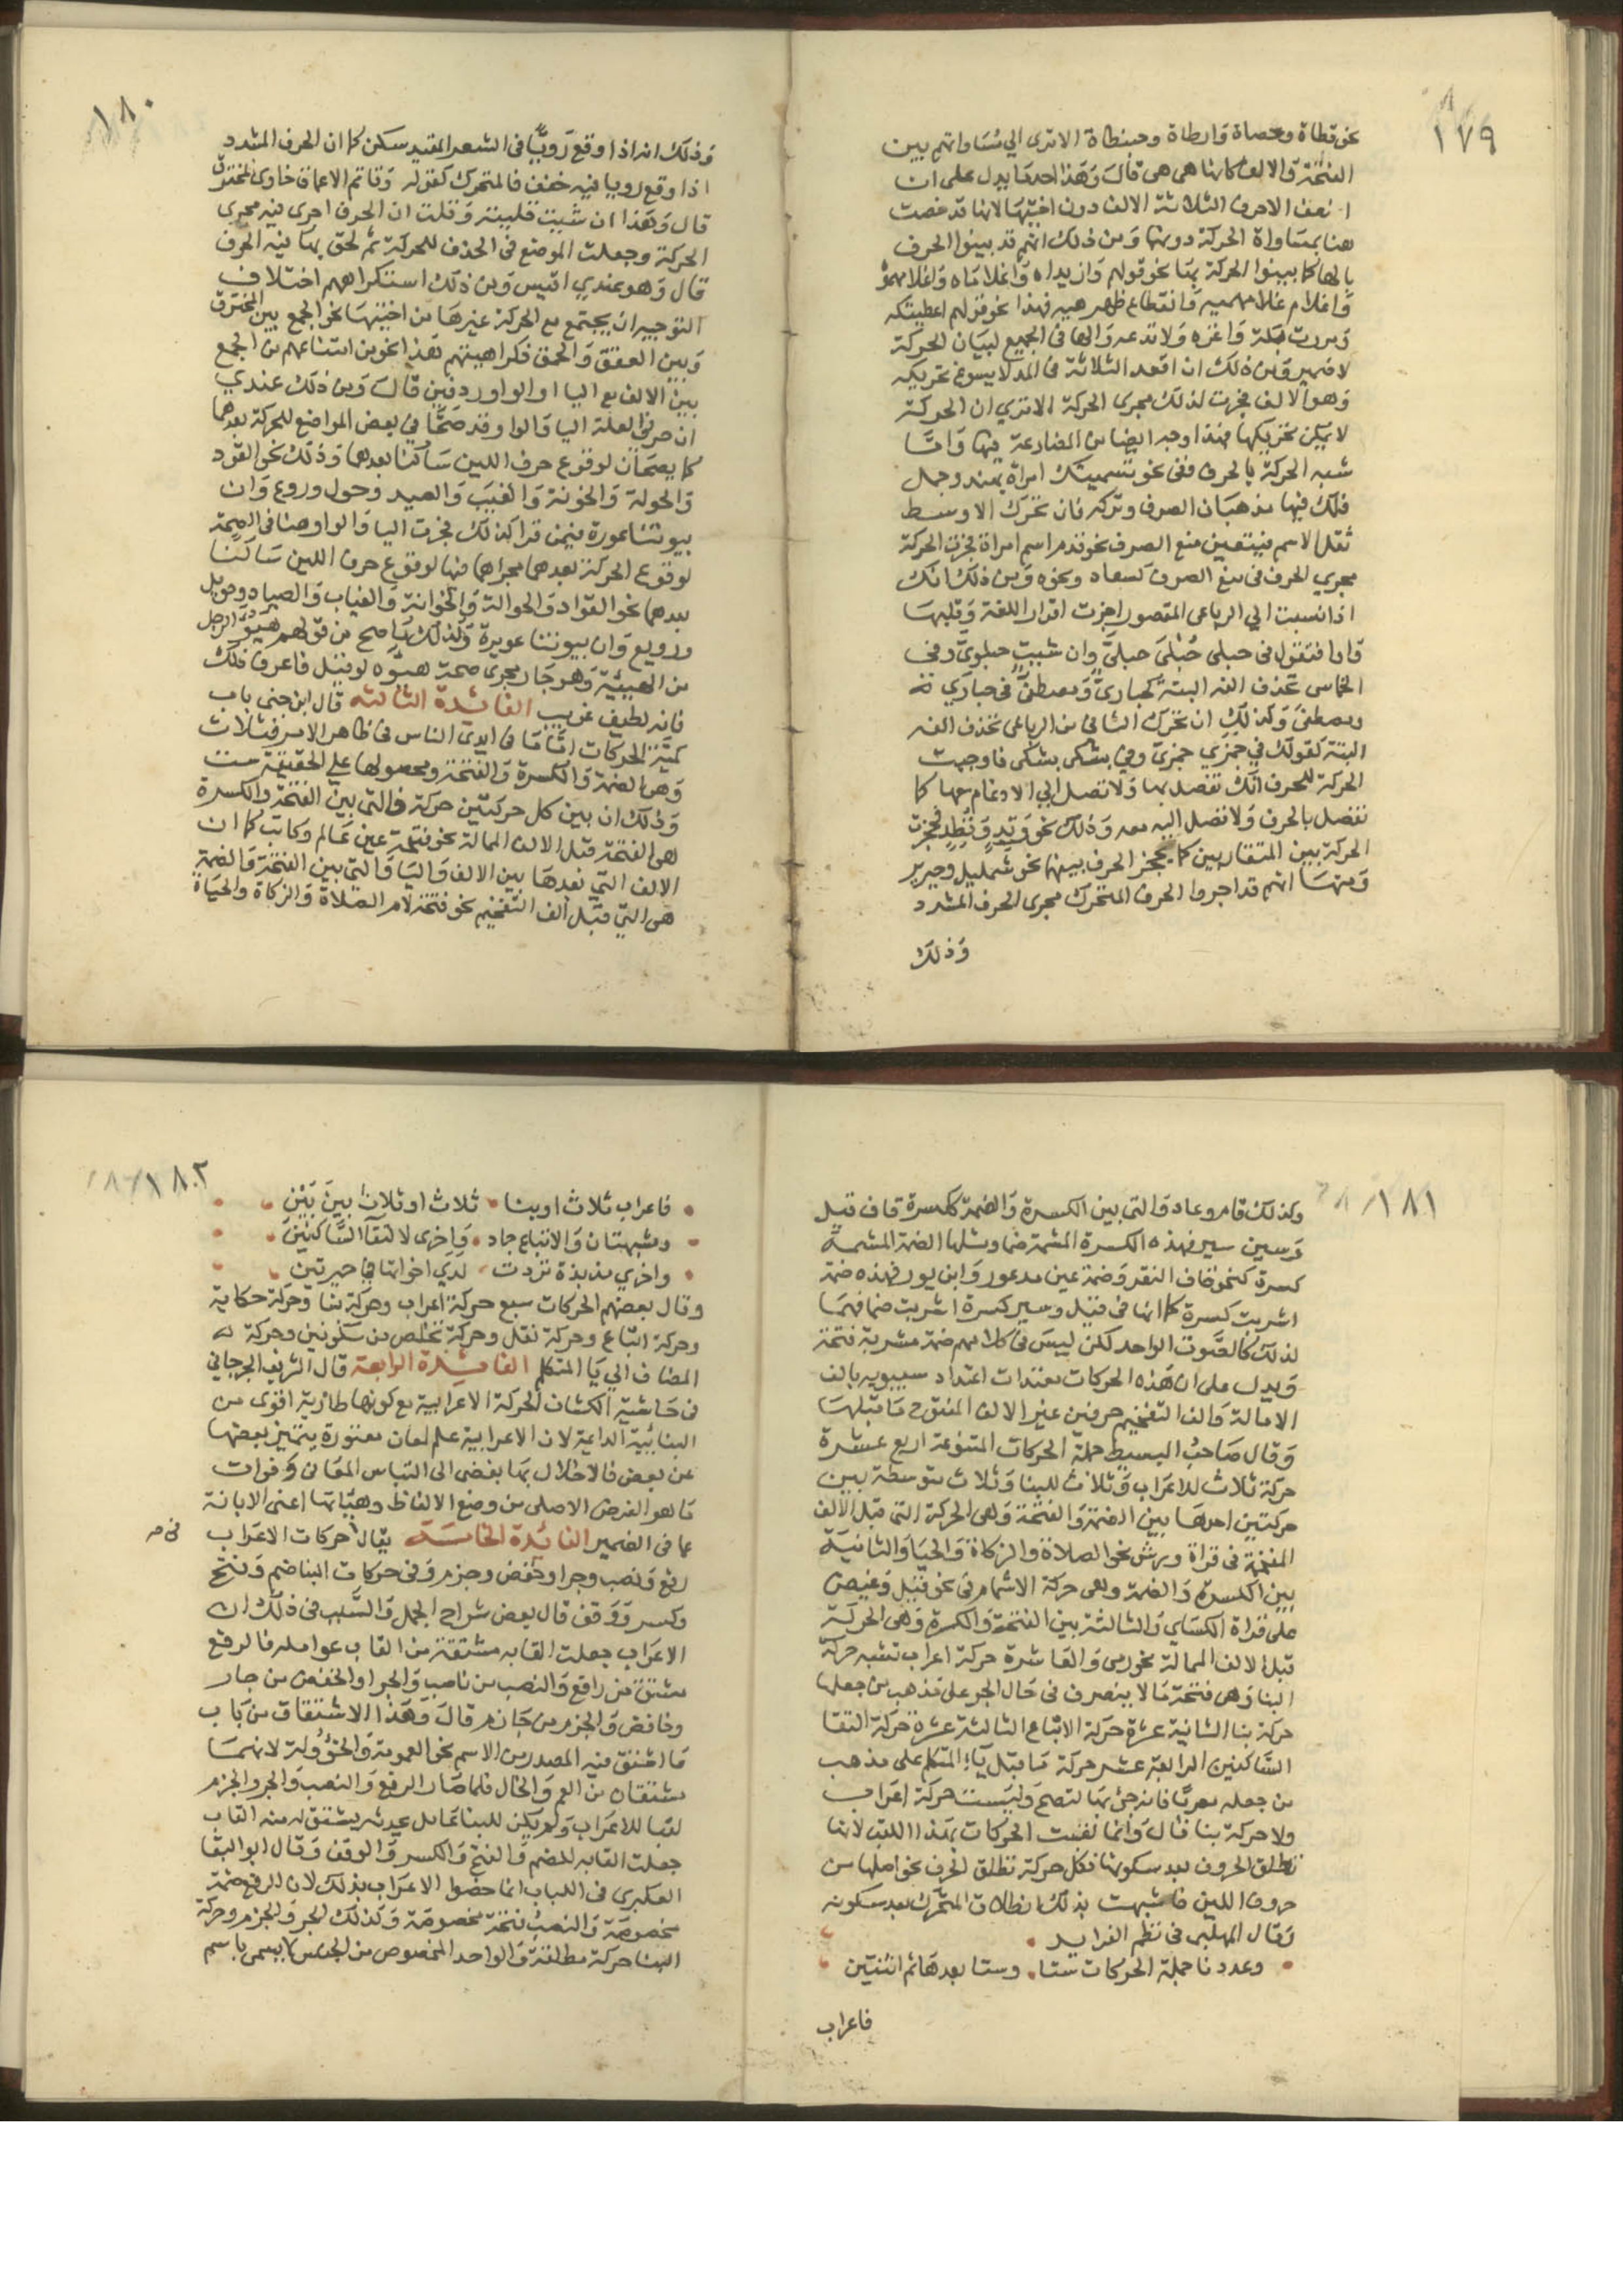 ١٧٩
نحو قطاة وحصاة وارطاة وحبنطاة الا ترى الي مساواتهم بين
الفتحة والالف كانها هي هي قال وهذا احد ما يدل على ان
اضعف الاحرف الثلاثة الالف دون اختيها لانها قد خصت
هنا بمساواة الحركة دونها ومن ذلك انهم قد بينوا الحرف
بالها كما بينوا الحركة بها نحو قولهم وازيداه واغلاماه واغلامهوه
واغلام غلامهميه وانقطاع ظهرهيه فهذا نحو قولهم اعطيتكه
ومررت بكه واغزه ولا تدعه والها في الجميع لبيان الحركة
لا ضمير ومن ذلك ان اقعد الثلاثة في المد لا يسوغ تحريكه
وهو الالف فجرت لذلك مجرى الحركة الا ترى ان الحركة
لا يمكن تحريكها فهذا وجه ايضا من المضارعة فيها واما
شبه الحركة بالحرف ففي نحو تسميتك امراة بهند وجمل
فلك فيها مذهبان الصرف وتركه فان تحرك الاوسط
ثقل الاسم فيتعين منع الصرف نحو قدم اسم امراة فجرت الحركة
مجري الحرف في منع الصرف كسعاد ونحوه ومن ذلك انك
اذا نسبت الي الرباعي المقصور اجزت اقرار الفه وقلبها
واوا فتقول في حبلى حُبْليَ حبليّ وان شيت حبلويّ وفي
الخماسي تحذف الفه البتة كحباريّ ومصطفيّ في حباري
ومصطفى وكذلك ان تحرك الثاني من الرباعي تحذف الفه
البتة كقولك في جمزي جمزيّ وفي بشكى بشكى فاوجبت
الحركة للحرف انك تفصل بها ولا تصل الي الادغام معها كما
تفصل بالحرف ولا تصل اليه معه وذلك نحو وتِدٍ ووطد فحجزت
الحركة بين المتقاربين كما يحجز الحرف بينهما نحو شمليل وحرير
ومنها انهم قد اجروا الحرف المتحرك مجرى الحرف المشدد
وذلك
١٨٠
وذلك انه اذا وقع رويّا في الشعر المقيد سكن كما ان الحرف المشدد
اذا وقع رويا فيه خفف فالمتحرك كقوله وقاتم الاعماق خاوى المخترق
قال وهذا ان شيت قلبته وقلت ان الحرف اجرى فيه مجرى
الحركة وجعلت الموضع في الحذف للحركة ثم لحق بها فيه الحرف
قال وهو عندي اقيس ومن ذلك استنكراههم اختلاف
التوجيه ان يجتمع مع الحركة غيرها من اختيها نحو الجمع بين المخترق
وبين العقق والحمق فكراهيتهم هذا نحو من امتناعهم من الجمع
بين الالف مع اليا او الواو ردفين قال ومن ذلك عندي
ان حرفي العلة اليا والواو قد صحّا في بعض المواضع للحركة بعدهما
كما يصحان لوقوع حرف اللين ساكنا بعدهما وذلك نحو القود
والحولة والخونة والغيب والصيد وحول وروع وان
بيوتنا عورة فيمن قرا كذلك فجرت اليا والواو هنا في الصحة
لوقوع الحركة بعدهما مجراهما فيها لوقوع حرف اللين ساكنا
بعدهما نحو القواد والحوالة والخوانة والغياب والصياد وحويل
ورويع وان بيوتنا عويرة وكذلك ما صح من قولهم هيُؤَ الرجل
من الهيئة وهو جار مجرى صحة هيوه لو قيل فاعرف ذلك
فانه لطيف غريب الفائدة الثالثه قال ابن جني باب
كميّة الحركات اما ما في ايدي الناس في ظاهر الامر فثلاث
وهي الضمة والكسرة والفتحة ومحصولها علي الحقيقة ست
وذلك ان بين كل حركتين حركة فالتي بين الفتحة والكسرة
هي الفتحة قبل الالف الممالة نحو فتحة عين عَالم وكاتب كما ان
الالف التي بعدها بين الالف واليا والتي بين الفتحة والضمة
هي التي قبل الف التفخيم نحو فتحة لام الصلاة والزكاة والحياة
١٨١
وكذلك قام وعاد والتي بين الكسرة والضمة ككسرة قاف قيل
وسين سير فهذه الكسرة المشمة ضما ومثلها الضمة المشمة
كسرة كنحو قاف النقر وضمة عين مدعور وابن بور فهذه ضمة
اشربت كسرة كما انها في قيل وسير كسرة اشربت ضما فهما
لذلك كالصوت الواحد لكن ليس في كلامهم ضمة مشربة فتحة
ويدل على ان هذه الحركات معتدات اعتداد سيبويه بالف
الامالة والف التفخيم حرفين غير الالف المفتوح ما قبلها
وقال صاحب البسيط جملة الحركات المتنوعة اربع عشرة
حركة ثلاث للاعراب وثلاث للبنا وثلاث متوسطة بين
حركتين احدها بين الضمة والفتحة وهي الحركة التي قبل الالف
المفخمة في قراة ورش نحو الصلاة والزكاة والحيا والثانية
بين الكسرة والضمة وهي حركة الاشمام في نحو قيل وغيض
على قراة الكساي والثالثة بين الفتحة والكسرة وهي الحركة
قبل الالف الممالة نحو رمى والعاشرة حركة اعراب تشبه حركة
البنا وهي فتحة ما لا ينصرف في حال الجر على مذهب من جعلها
حركة بنا الثانية عشرة حركة الاتباع الثالثة عشرة حركة التقا
السّاكنين الرابعة عشر حركة ما قبل ياء المتكلم على مذهب
من جعله معربًا فانه جئ بها لتصح وليست حركة اعراب
ولا حركة بنا قال وانما لقبت الحركات بهذا اللقب لانها
تطلق الحروف بعد سكونها فكل حركة تطلق الحرف نحو اصلها من
حروف اللين فاشبهت بذلك انطلاق المتحرك بعد سكونه
وقال المهلبى في نظم الفرايد
وعددنا جملة الحركات ستا وستا بعدها ثم اثنتين
فاعراب
١٨٢
فاعراب ثلاث او بنا ثلاث او ثلاث بينَ بَيْنِ
ومشبهتان والاتباع جاد وَاخرى لالتقآ السّاكنينَ
واخري مذ بذة تردت لدي اخواتها في حيرتين
وقال بعضهم الحركات سبع حركة اعراب وحركة بنا وحركة حكاية
وحركة اتباع وحركة نقل وحركة تخلص من سكونين وحركة
المضاف الي يا المتكلم الفائدة الرابعة قال الشريف الجرجاني
في حاشية الكشاف الحركة الاعرابية مع كونها طارية اقوى من
البنائية الداعية لان الاعرابية علم لمعان معتورة يتميز بعضها
عن بعض فالاخلال بها يفضى الى التباس المعاني وفوات
ما هو الغرض الاصلى من وضع الالفاظ وهيئاتها اعنى الابانة
عما في الضمير الفائدة الخامسة يقال حركات الاعراب
في صح
رفع ونصب وجر او خفض وجزم وفي حركات البنا ضم وفتح
وكسر ووقف قال بعض شراح الجمل والسّبب في ذلك ان
الاعراب جعلت القابه مشتقة من القاب عوامله فالرفع
مشتق من رافع والنصب من ناصب والجر او الخفض من جار
وخافض والجزم من جازم قال وهذا الاشتقاق من باب
ما اشتق فيه المصدر من الاسم نحو العمومة والخؤولة لانهما
مشتقان من العم والخال فلما صار الرفع والنصب والجر والجزم
لقبا للاعراب ولم يكن للبنا عامل يحدثه يشتق له منه القاب
جعلت القابه للضم والفتح والكسر والوقف وقال ابو البقا
العكبري في اللباب انما خصوا الاعراب بذلك لان الرفع ضمة
مخصوصة والنصب فتحة مخصوصة وكذلك الجر والجزم وحركة
البنا حركة مطلقة والواحد المخصوص من الجنس لا يسمى باسم